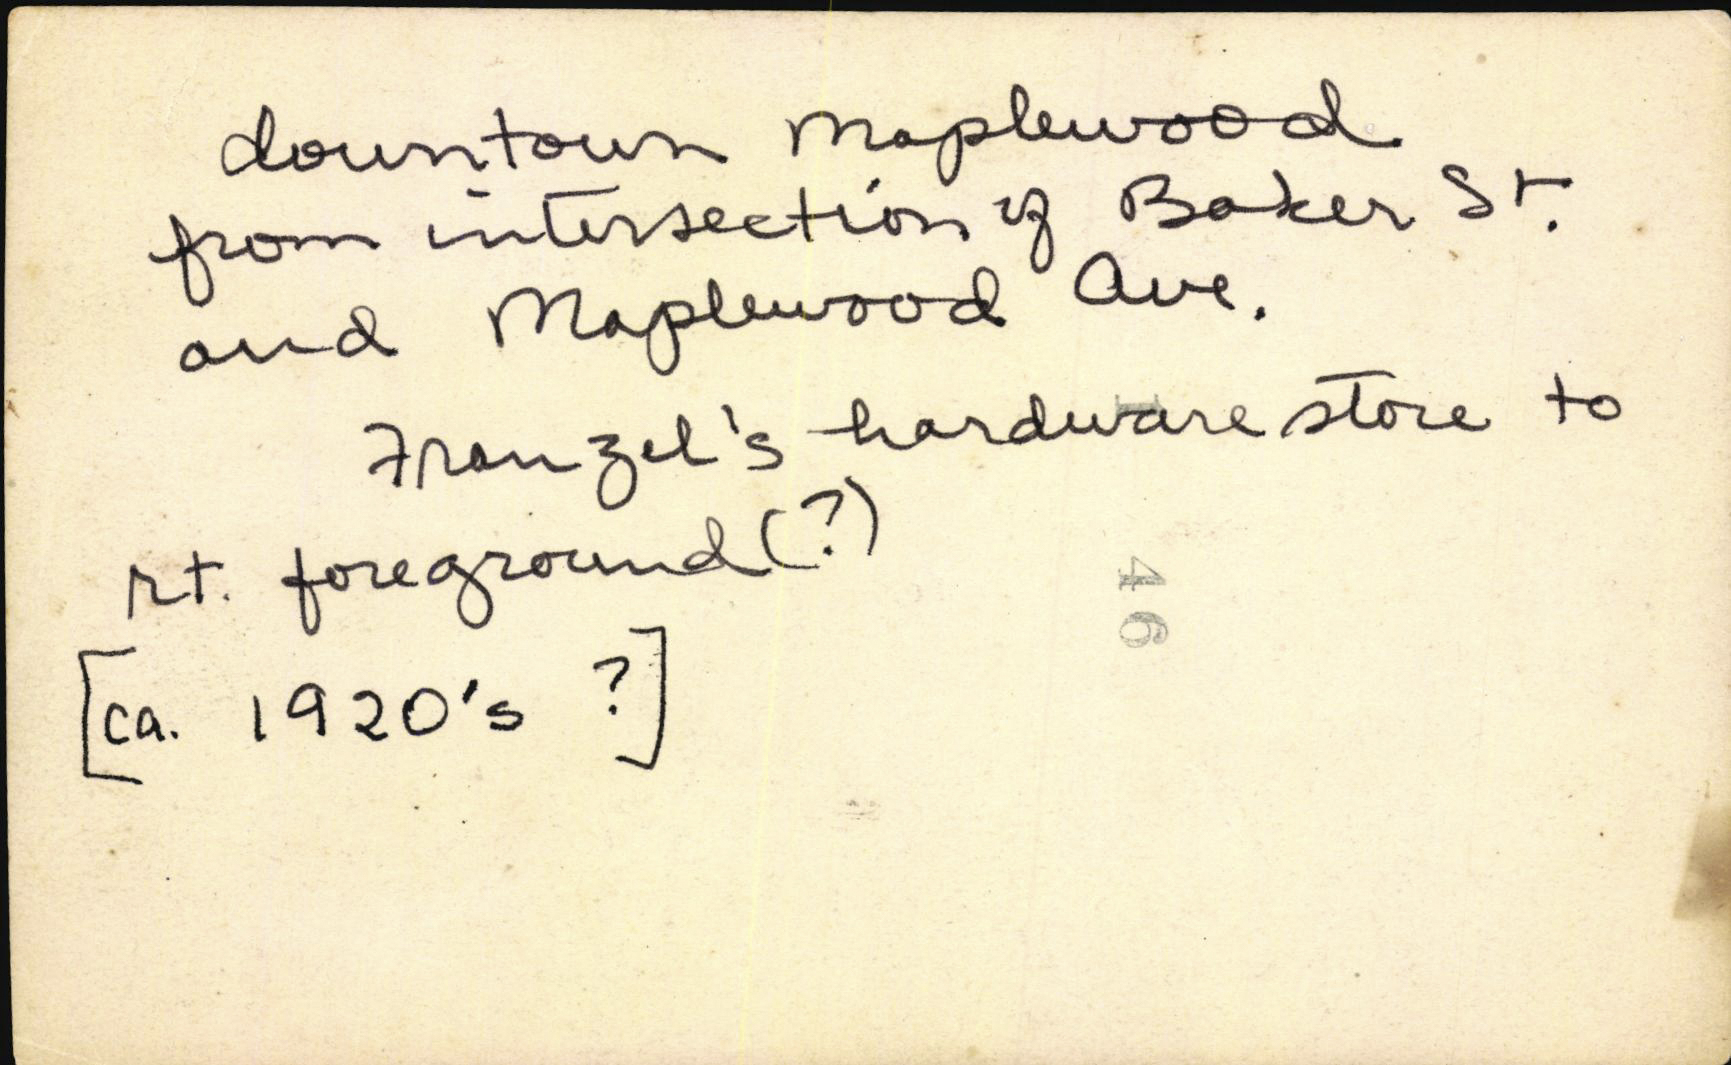 downtown Maplewood
from intersection of Baker St.
and Maplewood Ave.
Franzel's hardware store to
rt. foreground (?)
[ca. 1920's ?]
46